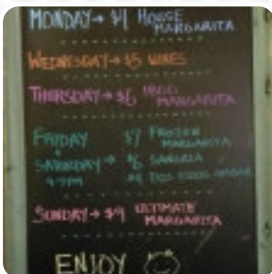 MONDAY → $4 HOUSE
MARGARITA
WEDNESDAY → $5 WINES
THURSDAY → $6
MARGARITA
FRIDAY $7 FROZEN
MARGARITA
SATURDAY → $6 SANGRIA
4-7PM $4 DOS EQUIS AMBAR
SUNDAY → $9 ULTIMATE
MARGARITA
ENJOY